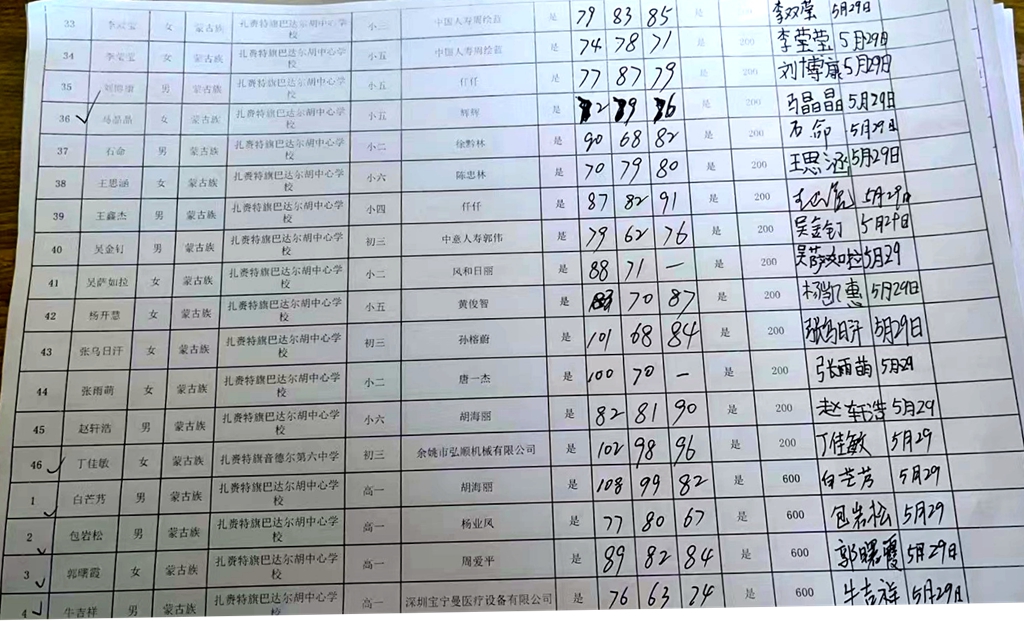 33 女 蒙古族 扎赉特旗巴达尔胡中心学校 小三 中国人寿周绘益 是 79 83 85 是 李双莹 5月29日
34 李莹宝 女 蒙古族 扎赉特旗巴达尔胡中心学校 小五 中国人寿周绘益 是 74 78 71 是 200 李莹莹 5月29日
35 刘博康 男 蒙古族 扎赉特旗巴达尔胡中心学校 小五 仟仟 是 77 87 79 是 200 刘博康 5月29日
36 ✓ 马晶晶 女 蒙古族 扎赉特旗巴达尔胡中心学校 小五 辉辉 是 72 79 76 是 200 马晶晶 5月29日
37 石命 男 蒙古族 扎赉特旗巴达尔胡中心学校 小二 徐黔林 是 90 68 82 是 200 石命 5月29日
38 王思涵 女 蒙古族 扎赉特旗巴达尔胡中心学校 小六 陈忠林 是 70 79 80 是 200 王思涵 5月29日
39 王鑫杰 男 蒙古族 扎赉特旗巴达尔胡中心学校 小四 仟仟 是 87 82 91 是 200 5月29日
40 吴金钉 男 蒙古族 扎赉特旗巴达尔胡中心学校 初三 中意人寿郭伟 是 79 62 76 是 200 吴金钉 5月29日
41 吴萨如拉 女 蒙古族 扎赉特旗巴达尔胡中心学校 小二 风和日丽 是 88 71 — 是 200 吴萨如拉 5月29
42 杨开慧 女 蒙古族 扎赉特旗巴达尔胡中心学校 小五 黄俊智 是 83 70 87 是 200 杨凯惠 5月29日
43 张乌日汗 女 蒙古族 扎赉特旗巴达尔胡中心学校 初三 孙榕蔚 是 101 68 84 是 200 张乌日汗 5月29日
44 张雨萌 女 蒙古族 扎赉特旗巴达尔胡中心学校 小二 唐一杰 是 100 70 — 是 200 张雨萌 5月29
45 赵轩浩 男 蒙古族 扎赉特旗巴达尔胡中心学校 小六 胡海丽 是 82 81 90 是 200 赵轩浩 5月29
46 ✓ 丁佳敏 女 蒙古族 扎赉特旗音德尔第六中学 初三 余姚市弘顺机械有限公司 是 102 98 96 是 200 丁佳敏 5月29
1 ✓ 白芒芳 男 蒙古族 扎赉特旗巴达尔胡中心学校 高一 胡海丽 是 108 99 82 是 600 白芒芳 5月29
2 ✓ 包岩松 男 蒙古族 扎赉特旗巴达尔胡中心学校 高一 杨业凤 是 77 80 67 是 600 包岩松 5月29
3 ✓ 郭曙霞 女 蒙古族 扎赉特旗巴达尔胡中心学校 高一 周爱平 是 89 82 84 是 600 郭曙霞 5月29日
4 ✓ 牛吉祥 男 蒙古族 扎赉特旗巴达尔胡中心学校 高一 深圳宝宁曼医疗设备有限公司 是 76 63 74 是 600 牛吉祥 5月29日